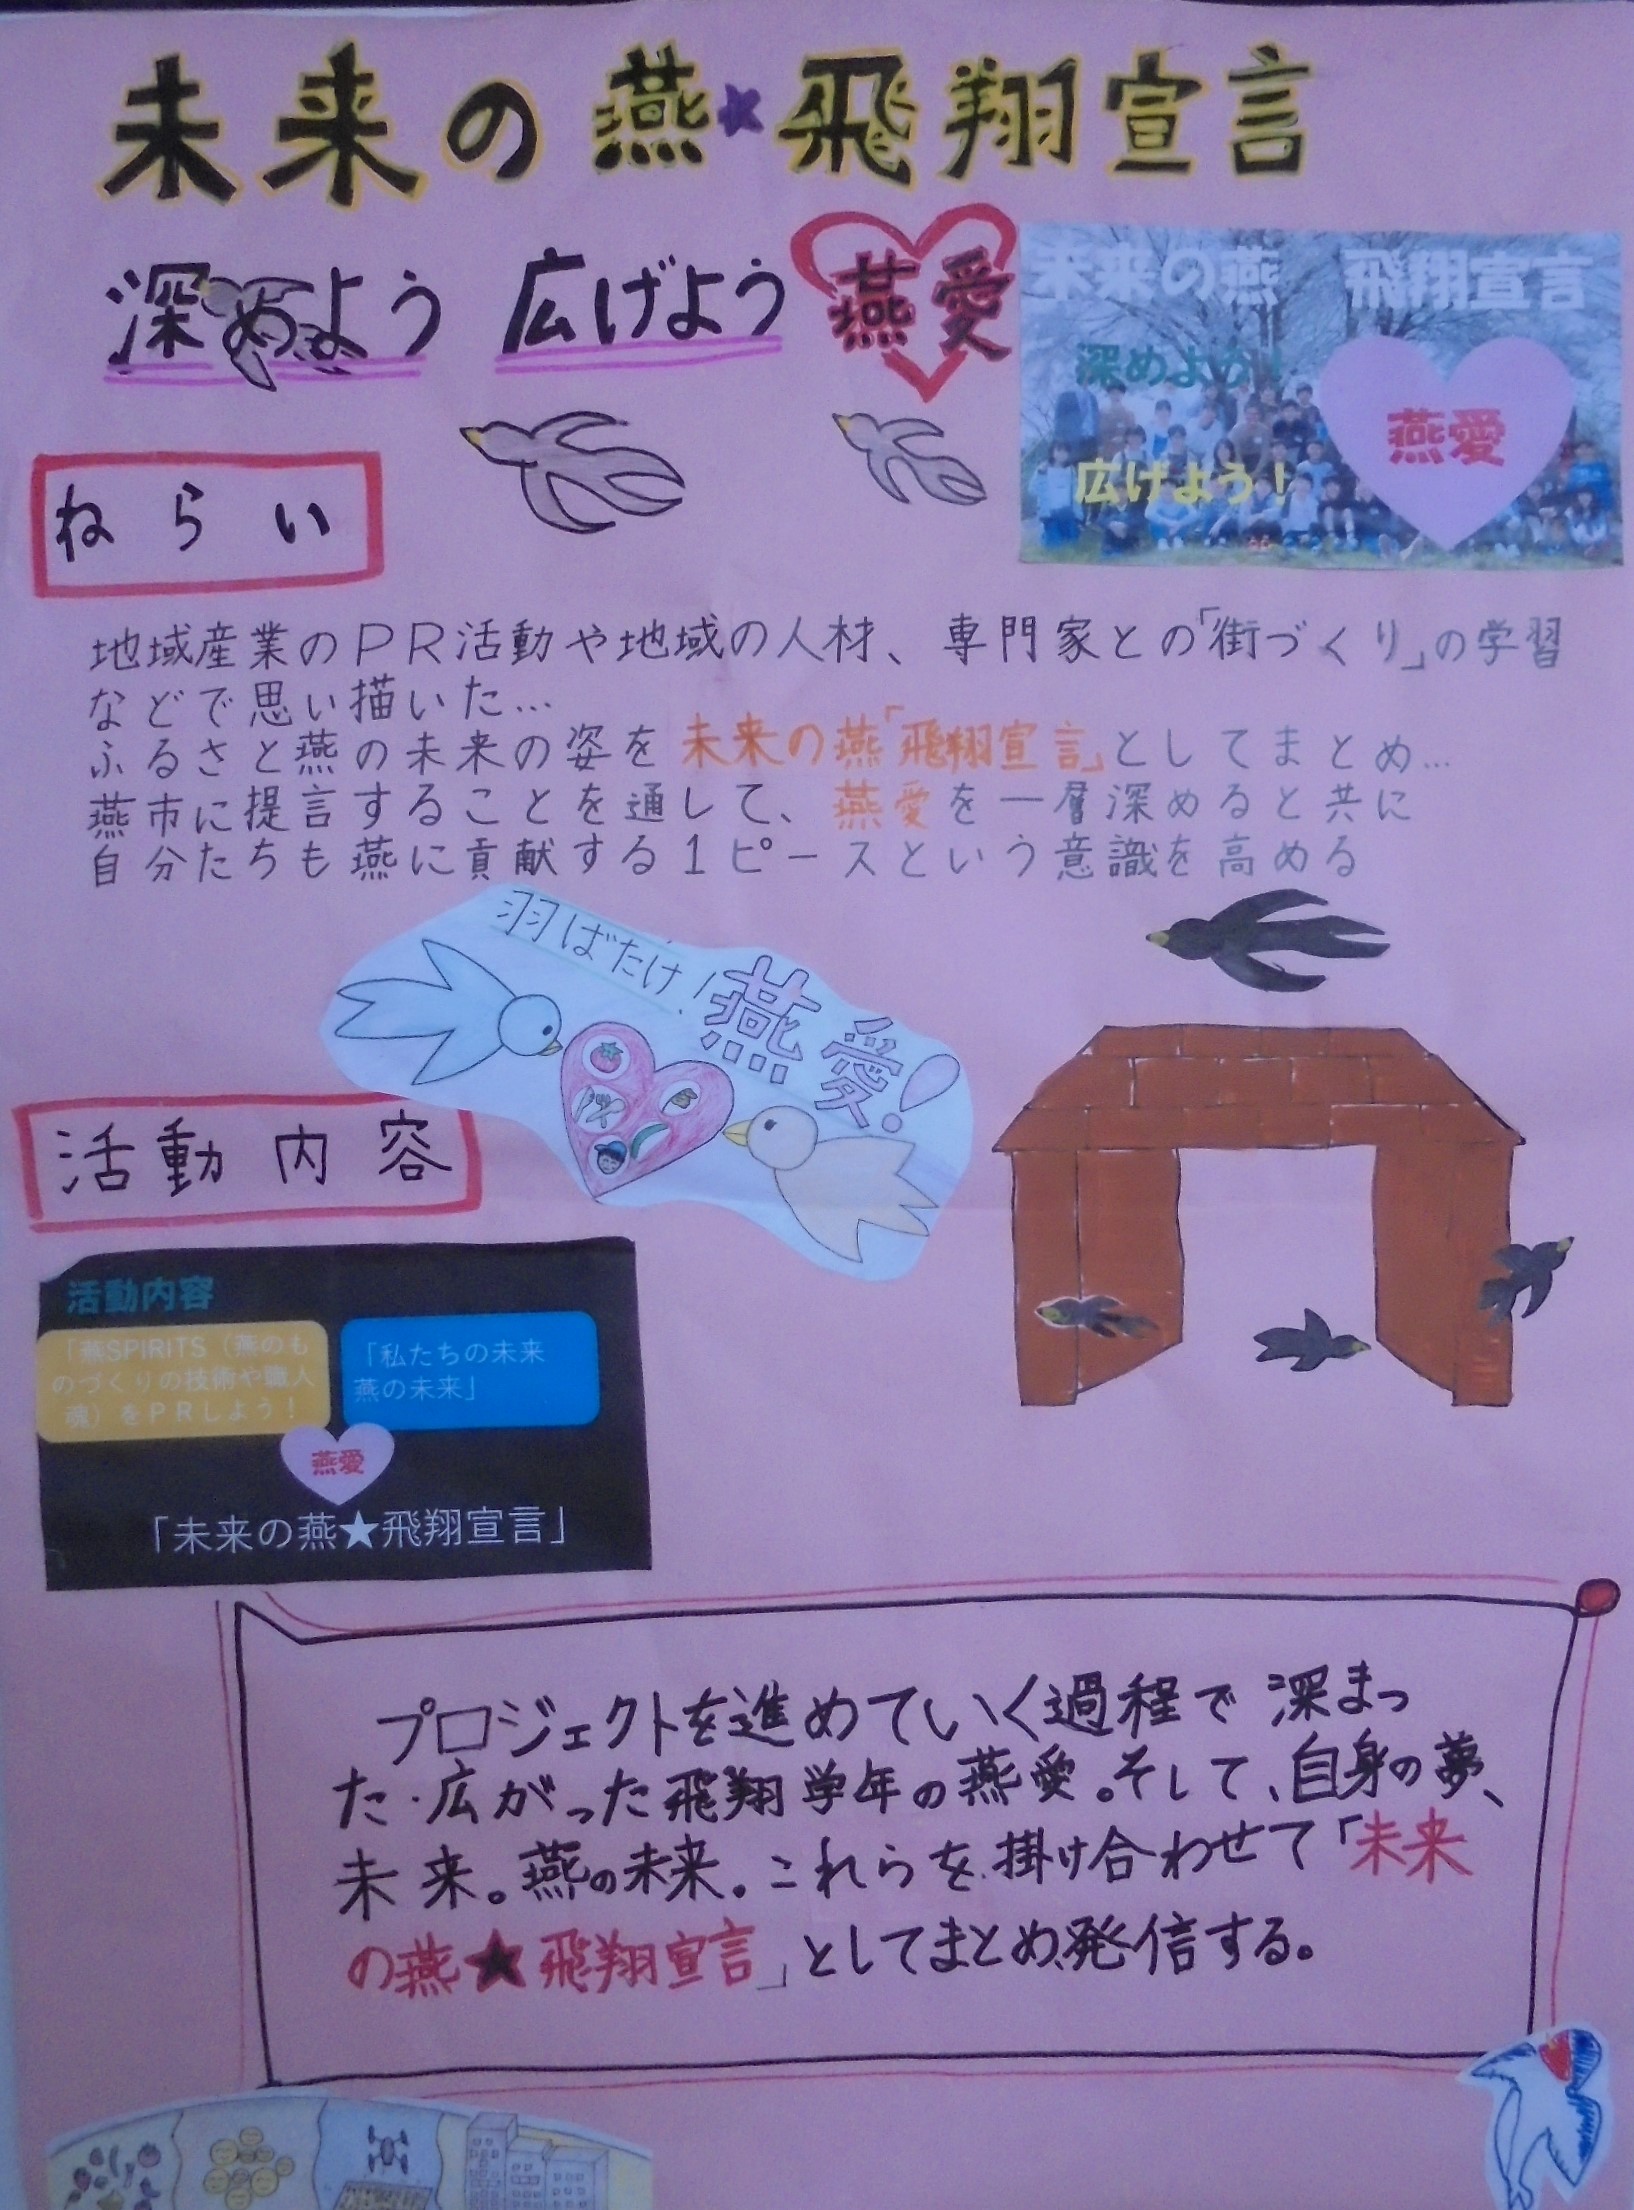 未来の燕★飛翔宣言
深めよう 広げよう 燕愛
未来の燕 飛翔宣言
深めよう!
広げよう!
燕愛
ねらい
地域産業のPR活動や地域の人材、専門家との「街づくり」の学習
などで思い描いた…
ふるさと燕の未来の姿を未来の燕「飛翔宣言」としてまとめ…
燕市に提言することを通して、燕愛を一層深めると共に
自分たちも燕に貢献する1ピースという意識を高める
羽ばたけ!燕愛!
活動内容
活動内容
「燕SPIRITS(燕のも
のづくりの技術や職人
魂)をPRしよう!
「私たちの未来
燕の未来」
燕愛
「未来の燕★飛翔宣言」
プロジェクトを進めていく過程で深まっ
た・広がった飛翔学年の燕愛。そして、自身の夢、
未来。燕の未来。これらを掛け合わせて「未来
の燕★飛翔宣言」としてまとめ、発信する。